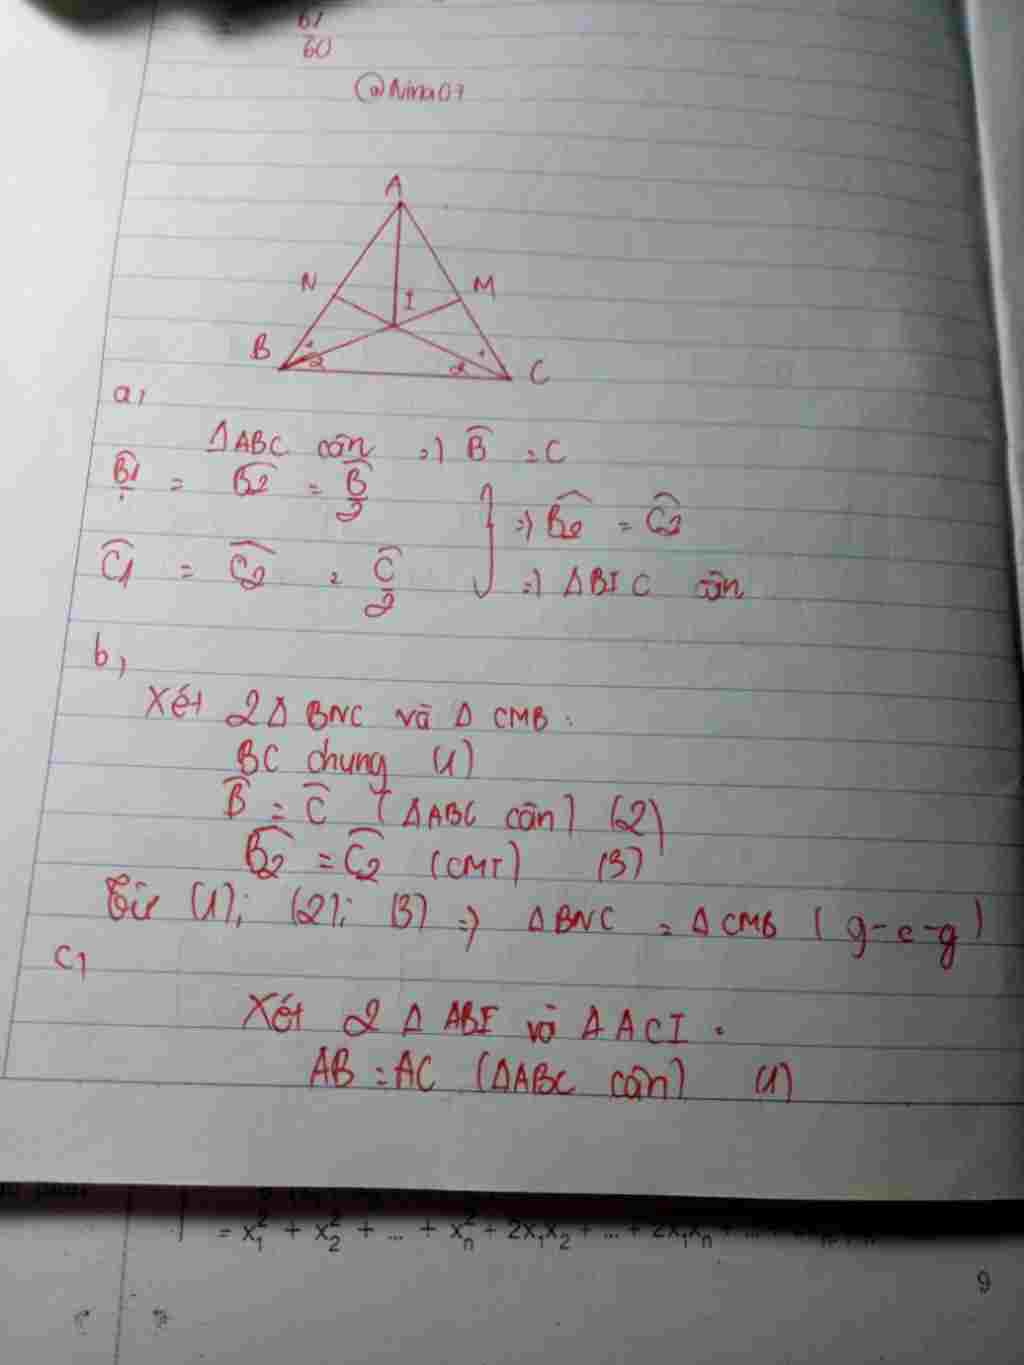 61
60
@Nina07
A
N
M
I
B
2
2
C
a,
ΔABC cân => B̂ = C
B̂1 = B̂2 = B̂/2
=> B̂2 = Ĉ2
Ĉ1 = Ĉ2 = Ĉ/2
=> ΔBIC cân
b,
Xét 2Δ BNC và Δ CMB:
BC chung (1)
B̂ = Ĉ (ΔABC cân) (2)
B̂2 = Ĉ2 (CMT) (3)
Từ (1); (2); (3) => ΔBNC = ΔCMB (g-c-g)
c,
Xét 2 Δ ABI và ΔACI.
AB = AC (ΔABC cân) (1)
= x₁² + x₂² + ... + xₙ² + 2x₁x₂ + ... + 2x₁xₙ + ...
9